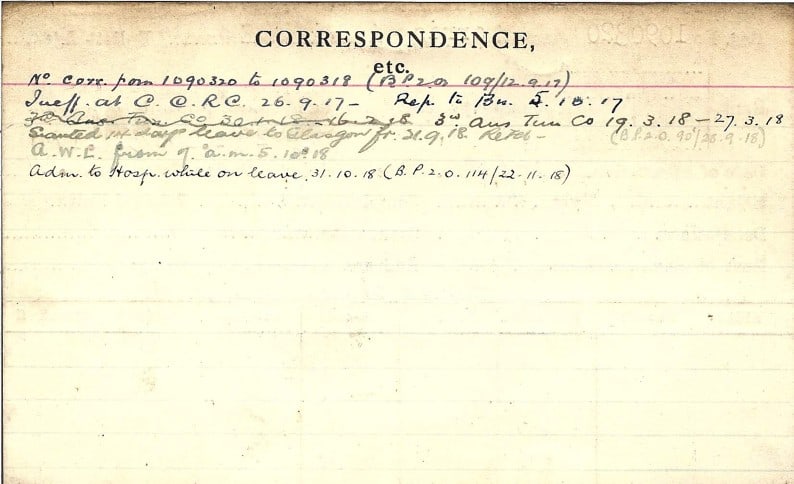 CORRESPONDENCE,
etc.
No corr. from 1090320 to 1090318 (B.P.2.O. 109/12.9.17)
Ineff. at C.C.R.C. 26.9.17 - Rep. to Bn. 5.10.17
3rd Aus Tun Co 16.2.18 3rd Aus Tun Co 19.3.18 - 27.3.18
Granted 14 days leave to Glasgow fr. 21.9.18 (B.P.2.O. 90/26.9.18)
A.W.L. from 9 a.m. 5.10.18
Adm. to Hosp. while on leave 31.10.18 (B.P.2.O. 114/22.11.18)